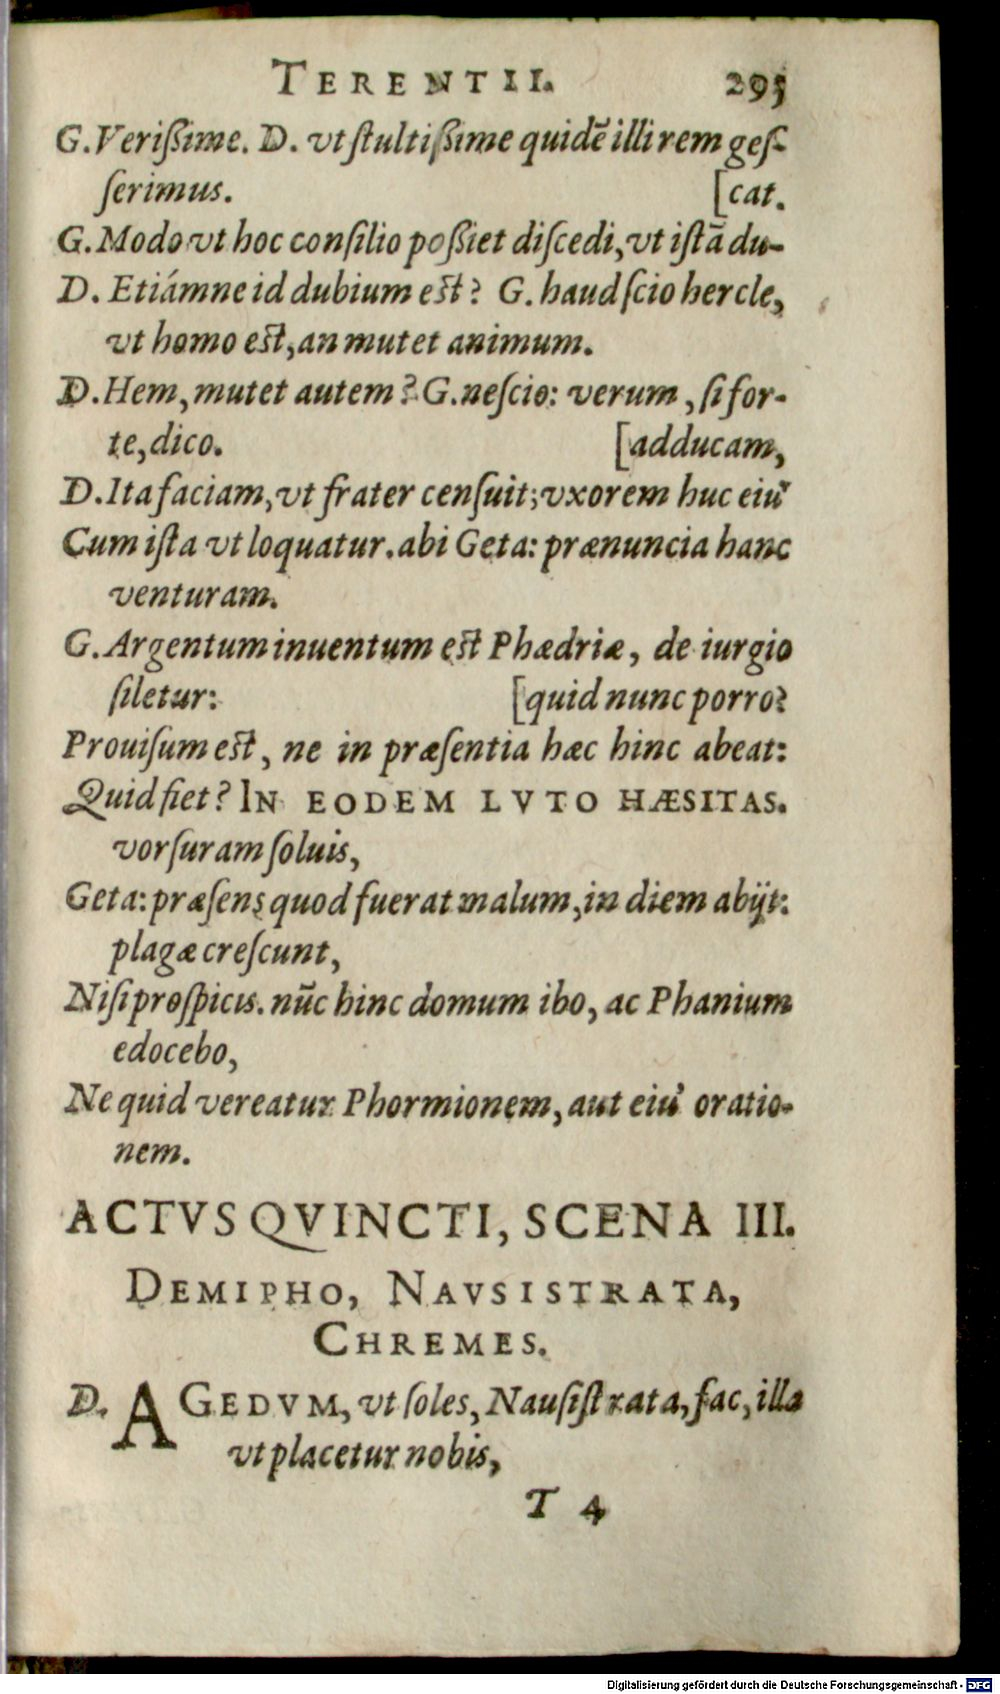 TERENTII. 295
G. Verißime. D. vt ſtultißime quidẽ illi rem geſ-
ſerimus. [cat.
G. Modo vt hoc conſilio poßiet diſcedi, vt iſtã du-
D. Etiámne id dubium est? G. haud ſcio hercle,
vt homo est, an mutet animum.
D. Hem, mutet autem? G. neſcio: verum, ſi for-
te, dico. [adducam,
D. Ita faciam, vt frater cenſuit; vxorem huc eiuꝰ
Cum iſta vt loquatur. abi Geta: prænuncia hanc
venturam.
G. Argentum inuentum est Phædriæ, de iurgio
ſiletur: [quid nunc porro?
Prouiſum est, ne in præſentia hæc hinc abeat:
Quid fiet? IN EODEM LVTO HÆSITAS.
vorſuram ſoluis,
Geta: præſens quod fuerat malum, in diem abijt:
plagæ creſcunt,
Niſi proſpicis. nũc hinc domum ibo, ac Phanium
edocebo,
Ne quid vereatur Phormionem, aut eiuꝰ oratio-
nem.
ACTVS QVINCTI, SCENA III.
DEMIPHO, NAVSISTRATA,
CHREMES.
D. AGEDVM, vt ſoles, Nauſiſtrata, fac, illa
vt placetur nobis,
T 4
Digitalisierung gefördert durch die Deutsche Forschungsgemeinschaft - DFG